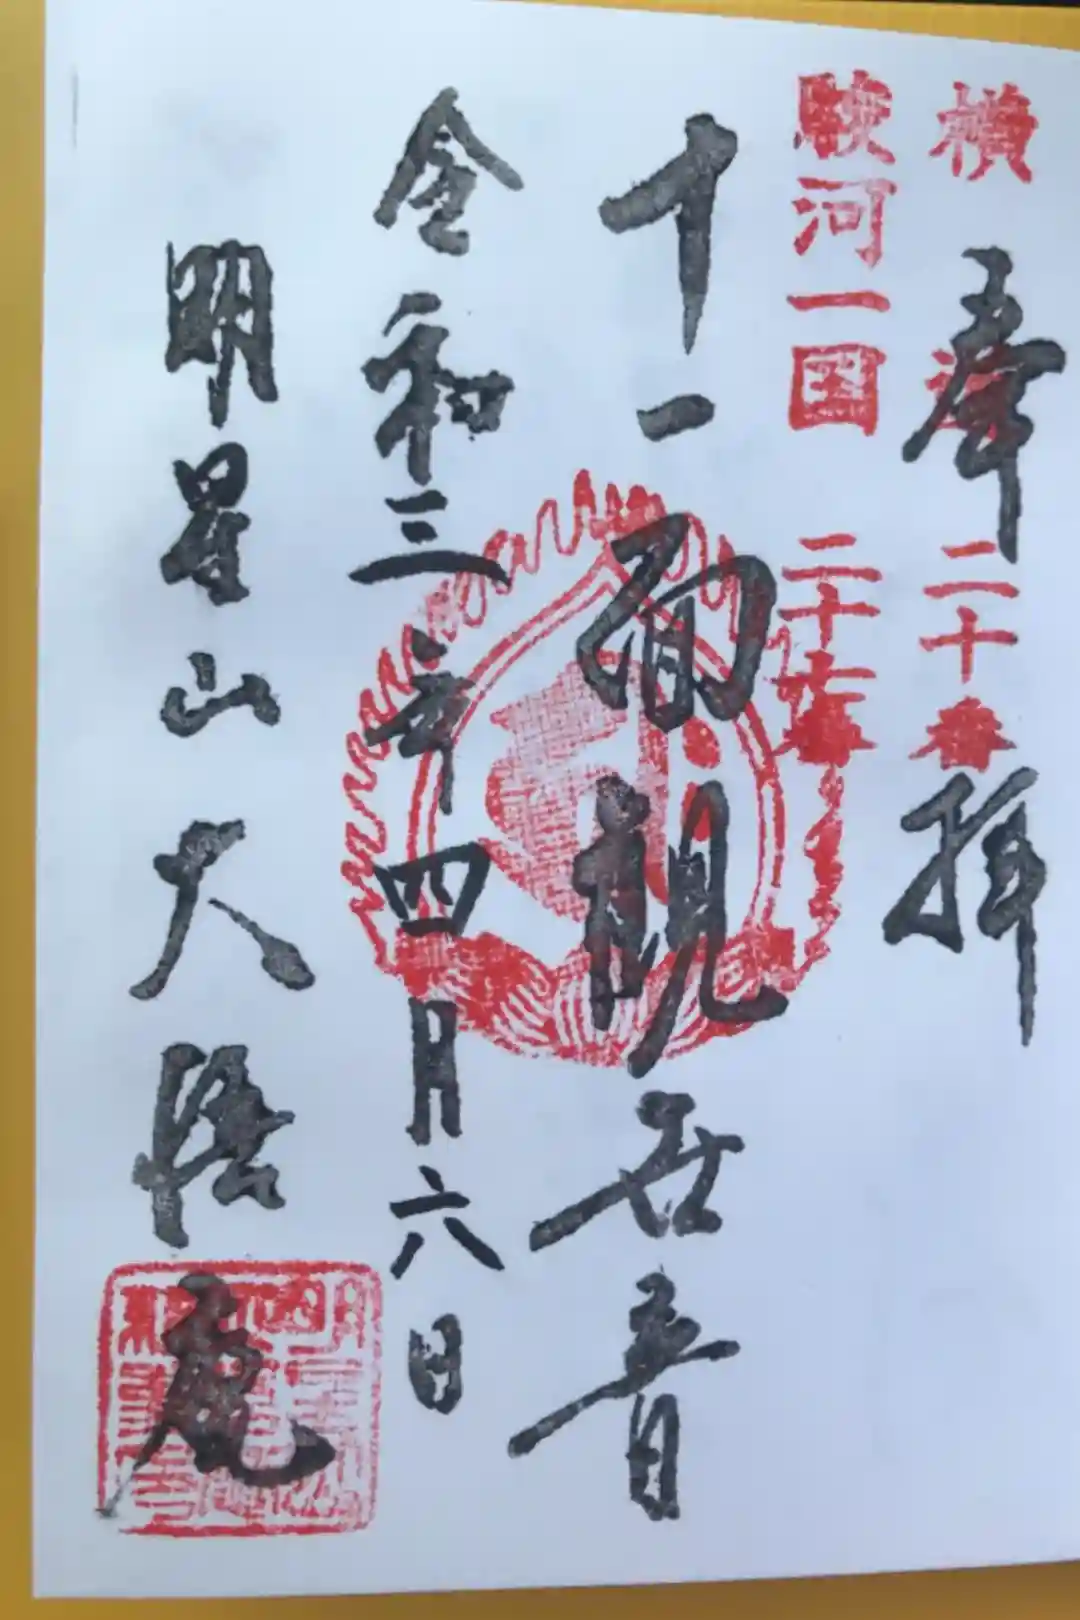 横道 二十番
奉拝
駿河一国 二十七番
十一面観世音
令和三年四月六日
明星山大悟庵